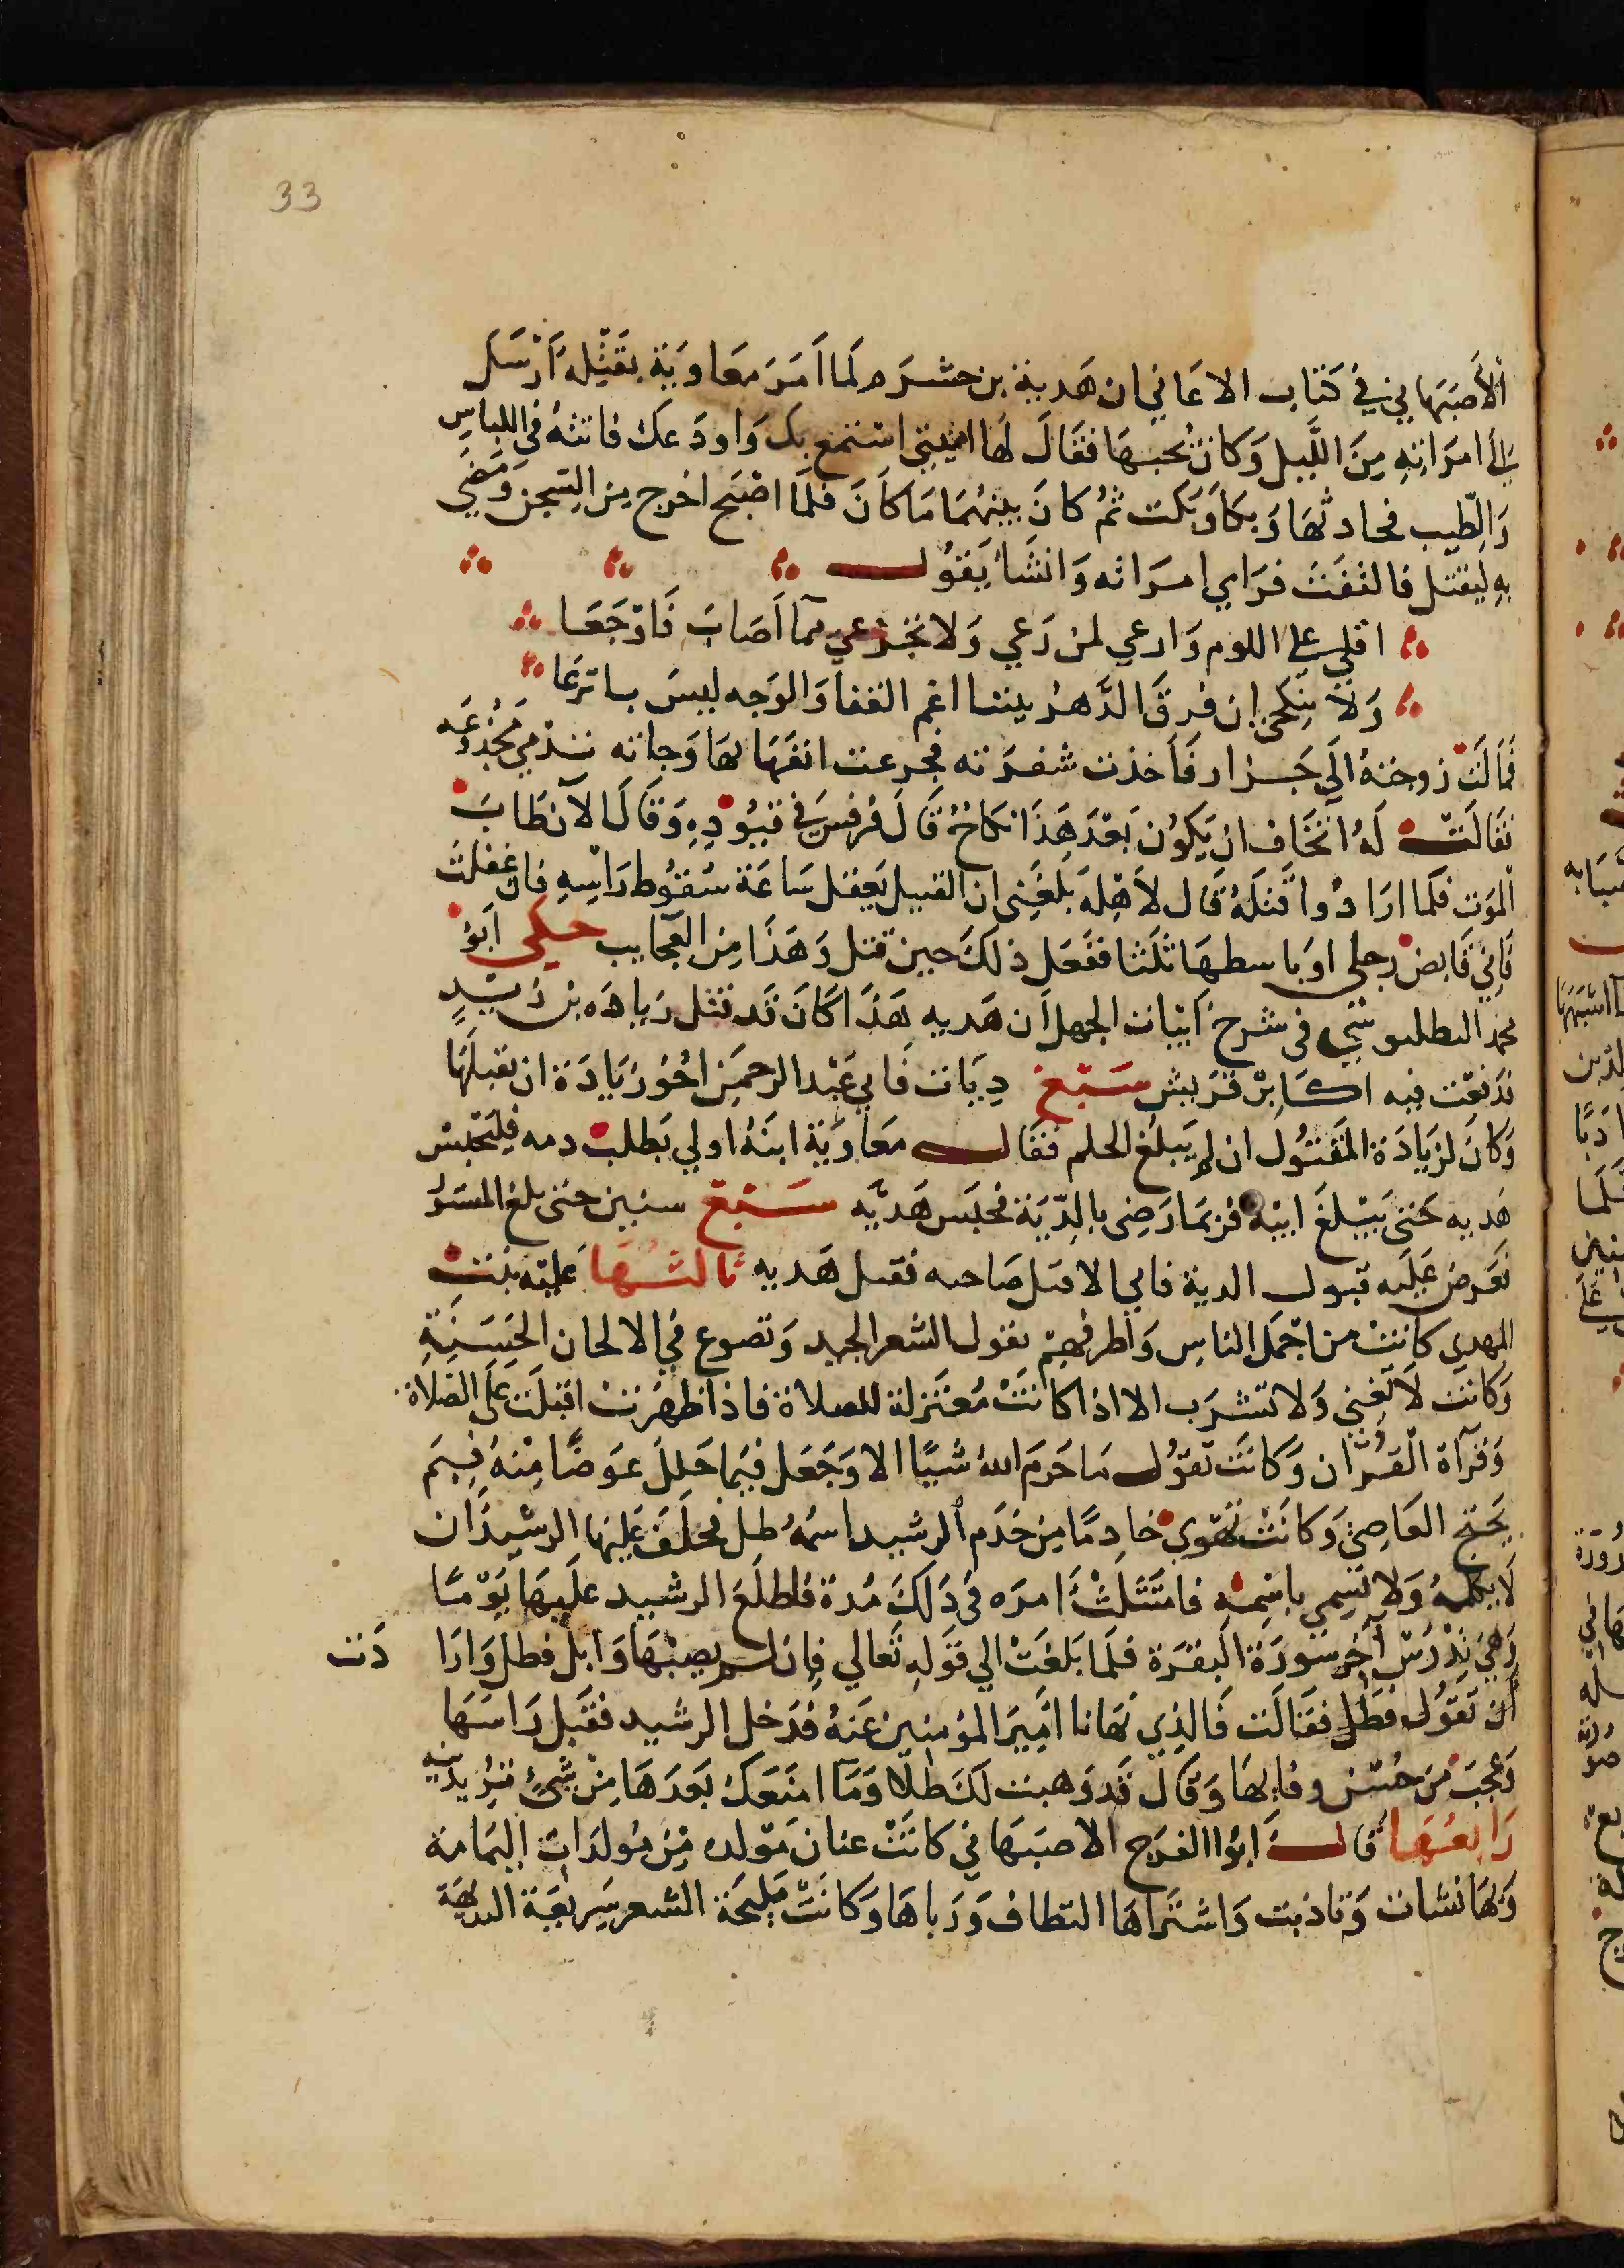 33
الأصبهاني في كتاب الاغاني ان هدبة بن حشرم لما امر معاوية بقتله ارسل
الى امراته من الليل وكان يحبها فقال لها ايتيني استمتع بك واودعك فاتته في اللباس
والطيب فحادثها وبكا وبكت ثم كان بينهما ما كان فلما اصبح اخرج من السجن ومضي
به ليقتل فالتفت فراي امراته وانشا يقول
اقلي علي اللوم وارعي لمن رعي ولا تجزعي مما اصاب فاوجعا
ولا تنكحي ان فرق الدهر بيننا اغم القفا والوجه ليس بانزعا
فمالت زوجته الي جزار فاخذت شفرته فجرعت انفها بها وجاته تدمي مجدوعه
فقالت له اتخاف ان يكون بعد هذا نكاح قال فرفس في قيوده وقال الآن طاب
الموت فلما ارادوا قتله قال لاهله بلغني ان القتيل يعقل ساعة سقوط راسه فان غفلت
فاني قابض رجلي او باسطها ثلثا ففعل ذلك حين قتل وهذا من العجايب حكي ابو
محمد البطليوسي في شرح ابيات الجمل ان هدبه هذا كان قد قتل زيادة بن زيد
فدفعت فيه اكابر قريش سبع ديات فابي عبد الرحمن اخو زيادة ان يقبلها
وكان لزيادة المقتول ابن لم يبلغ الحلم فقال معاوية ابنه اولي بطلب دمه فليحبس
هدبه حتى يبلغ ابنه فربما رضى بالدية فحبس هدبه سبع سنين حتى بلغ المسور
فعرض عليه قبول الدية فابي الا قتل صاحبه فقتل هدبه ثالثها علية بنت
المهدي كانت من اجمل الناس واظرفهم تقول الشعر الجيد وتصوع في الالحان الحسنة
وكانت لا تغني ولا تشرب الا اذا كانت معتزلة للصلاة فاذا ظهرت اقبلت على الصلاة
وقرآة القرآن وكانت تقول ما حرم الله شيا الا وجعل فيما حلل عوضا منه فبم
يحتج العاصي وكانت تهوي خادما من خدم الرشيد اسمه طل فحلف عليها الرشيد ان
لا تكلمه ولا تسمي باسمه فامتثلث امره في ذلك مدة فاطلع الرشيد عليها يوما
وهي تدرس آخر سورة البقرة فلما بلغت الي قوله تعالي فان لم يصبها وابل فطل وارا دت
ان تقول فطل فقالت فالذي نهانا امير المؤمنين عنه فدخل الرشيد فقبل راسها
وعجب من حسن وفايها وقال قد وهبت لك طلا وما امنعك بعدها من شئ تريدينه
رابعها قال ابوا الفرج الاصبهاني كانت عنان مولده من مولدات اليمامة
وبها نشات وتاذبت واشتراها النطاف ورباها وكانت مليحة الشعر سريعة البديهة